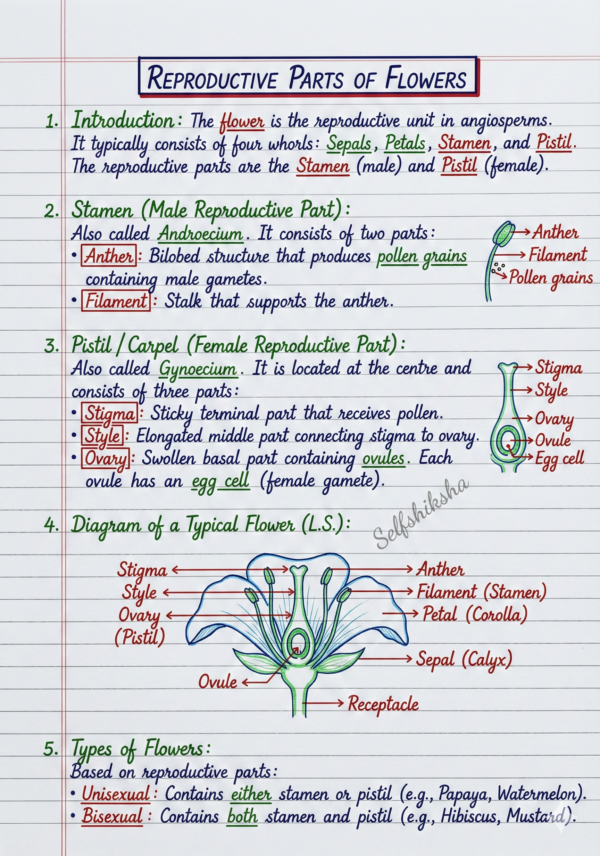 REPRODUCTIVE PARTS OF FLOWERS
1. Introduction: The flower is the reproductive unit in angiosperms.
It typically consists of four whorls: Sepals, Petals, Stamen, and Pistil.
The reproductive parts are the Stamen (male) and Pistil (female).
2. Stamen (Male Reproductive Part):
Also called Androecium. It consists of two parts:
• Anther: Bilobed structure that produces pollen grains
containing male gametes.
• Filament: Stalk that supports the anther.
Anther
Filament
Pollen grains
3. Pistil/Carpel (Female Reproductive Part):
Also called Gynoecium. It is located at the centre and
consists of three parts:
• Stigma: Sticky terminal part that receives pollen.
• Style: Elongated middle part connecting stigma to ovary.
• Ovary: Swollen basal part containing ovules. Each
ovule has an egg cell (female gamete).
Stigma
Style
Ovary
Ovule
Egg cell
Selfshiksha
4. Diagram of a Typical Flower (L.S.):
Stigma
Style
Ovary
(Pistil)
Ovule
Anther
Filament (Stamen)
Petal (Corolla)
Sepal (Calyx)
Receptacle
5. Types of Flowers:
Based on reproductive parts:
• Unisexual: Contains either stamen or pistil (e.g., Papaya, Watermelon).
• Bisexual: Contains both stamen and pistil (e.g., Hibiscus, Mustard).